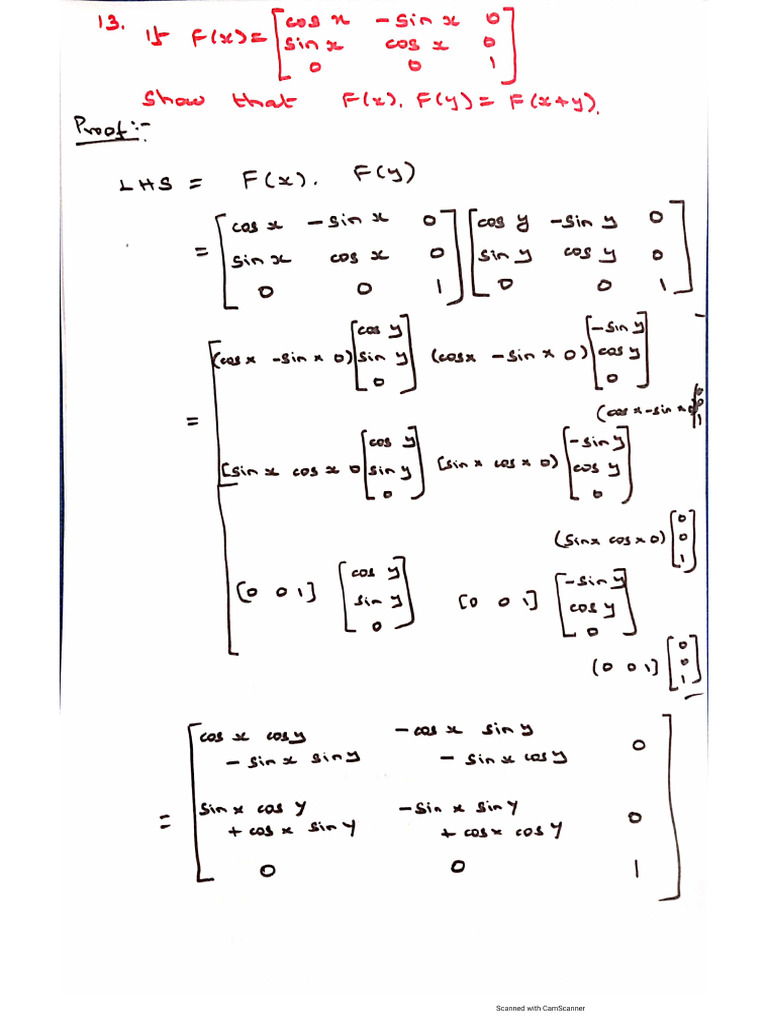 13. If F(x) = [cos x -sin x 0
sin x cos x 0
0 0 1]
Show that F(x). F(y) = F(x+y).
Proof:-
LHS = F(x). F(y)
= [cos x -sin x 0 [cos y -sin y 0
sin x cos x 0 sin y cos y 0
0 0 1] 0 0 1]
= [(cos x -sin x 0) [cos y sin y 0] (cos x -sin x 0) [-sin y cos y 0]
(cos x -sin x 0 [0 0 1]
[sin x cos x 0 [cos y sin y 0] [sin x cos x 0) [-sin y cos y 0]
(sin x cos x 0) [0 0 1]
[0 0 1] [cos y sin y 0] [0 0 1] [-sin y cos y 0]
(0 0 1] [0 0 1]
= [cos x cos y -cos x sin y
- sin x sin y - sin x cos y 0
sin x cos y -sin x sin y
+ cos x sin y + cos x cos y 0
0 0 1]
Scanned with CamScanner